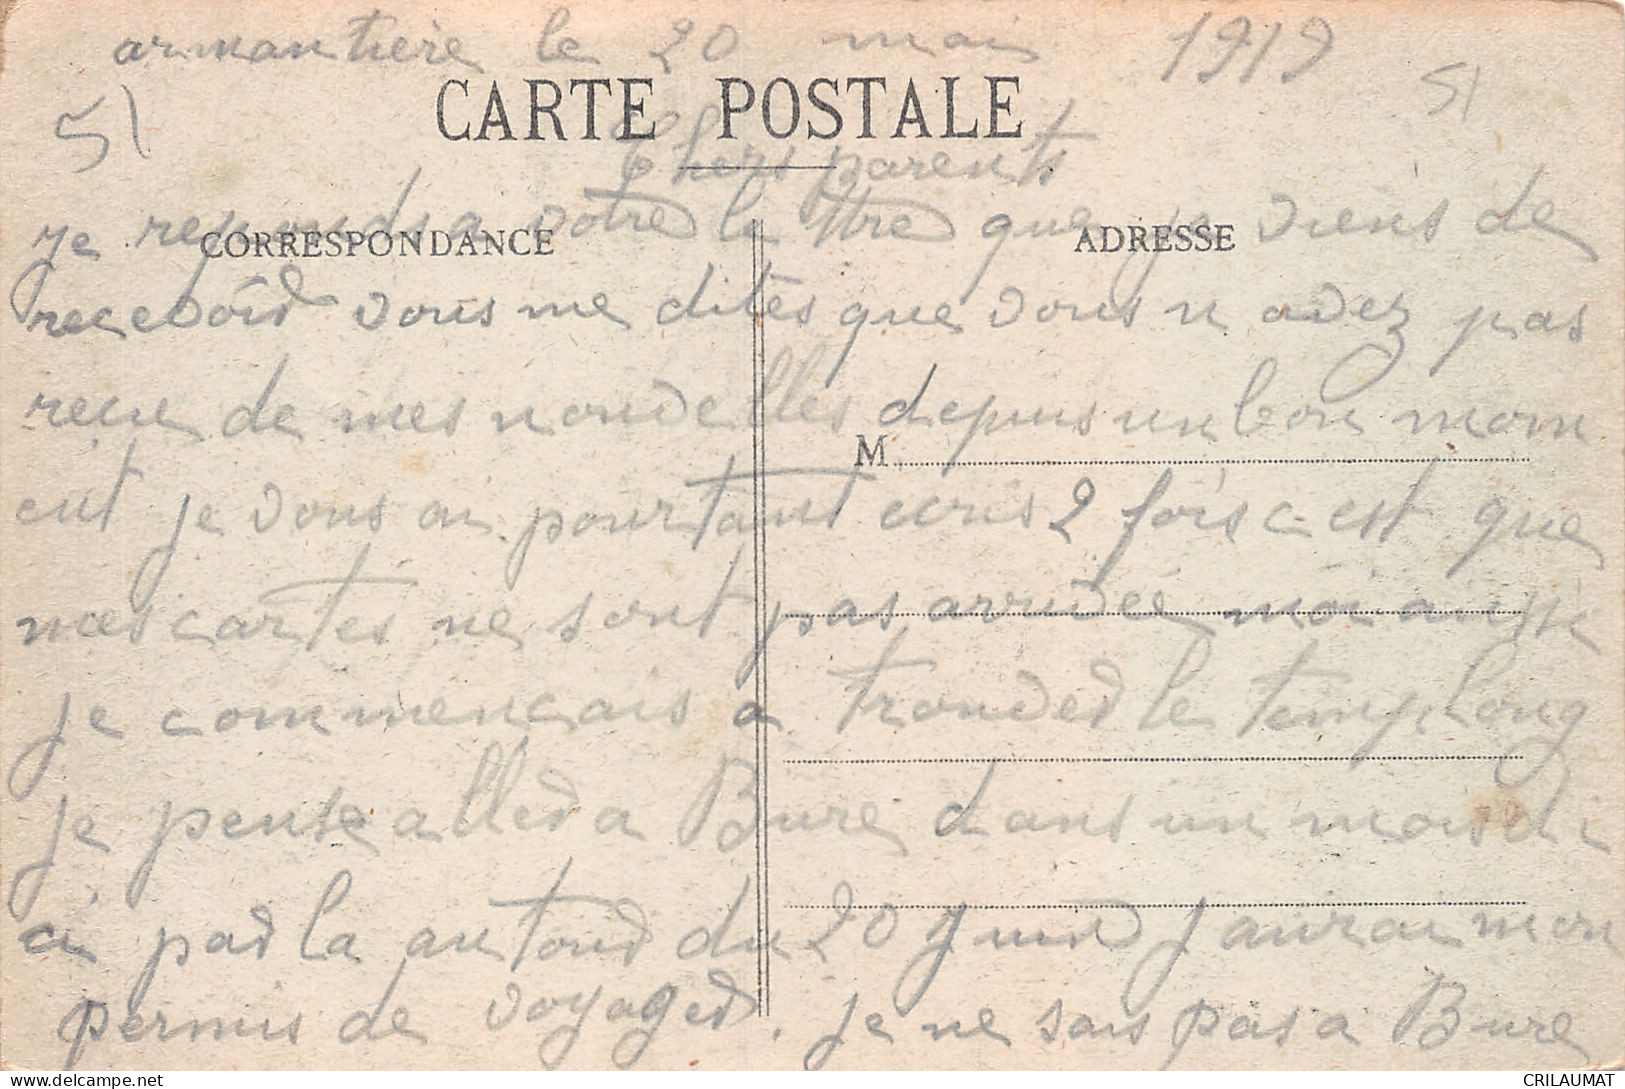 armantiere le 20 mai 1919
51
51
CARTE POSTALE
Chers parents
je reponds a votre lettre que j viens de
CORRESPONDANCE
ADRESSE
recevoir vous me dites que vous n avez pas
recu de mes nouvelles depuis un bon mom
M
ent je vous ai pourtant ecris 2 fois c est que
mes cartes ne sont pas arrivée moi aussi
je commencais a trouver le temp long
je pense aller a Bure dans un mois di
ci par la autour du 20 juin j aurai mon
permis de voyager. je ne sais pas a Bure
CRILAUMAT